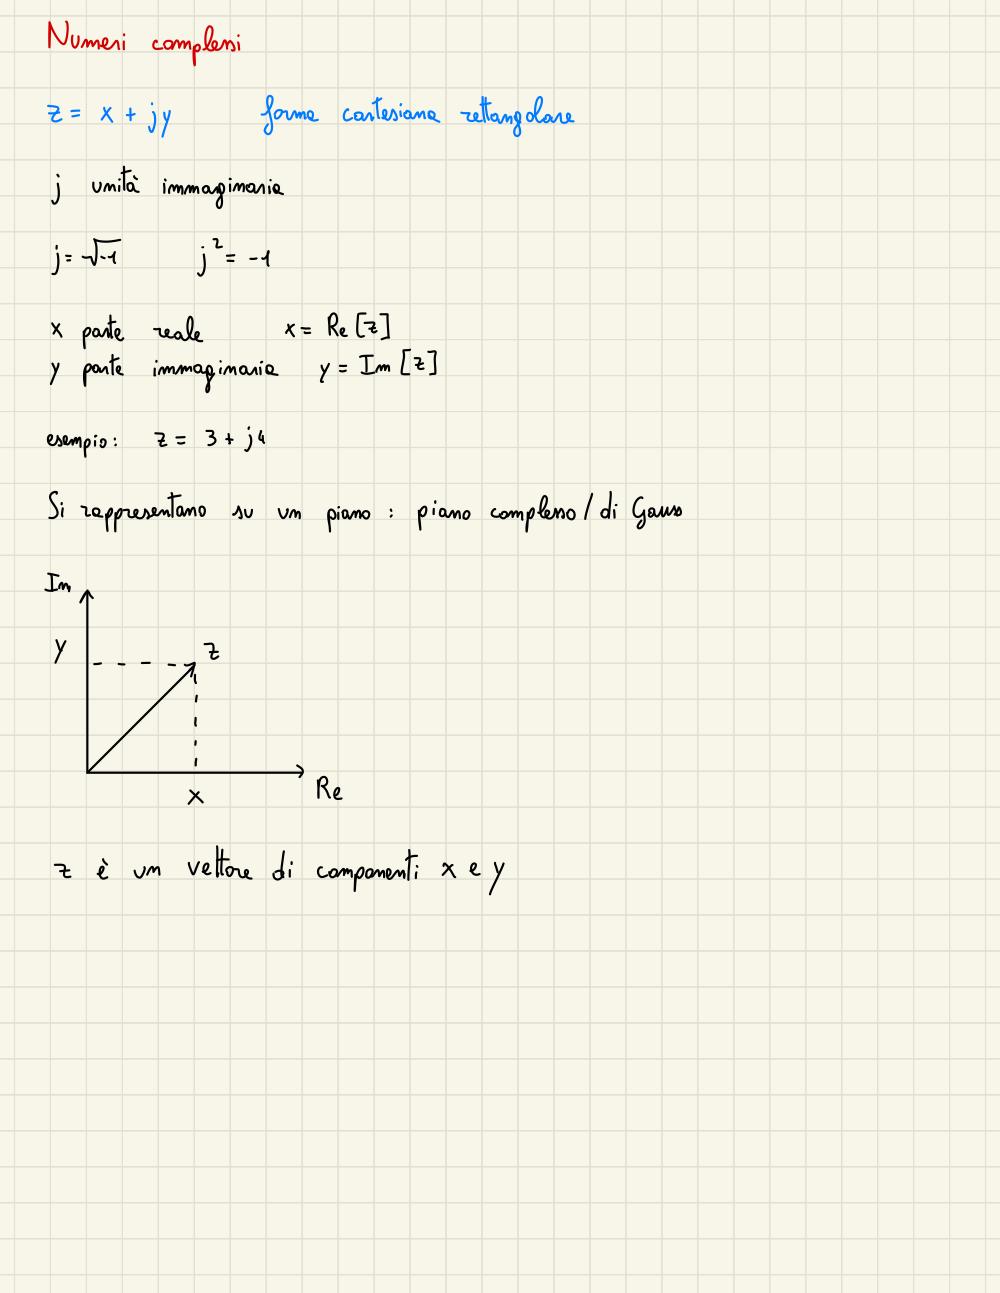 Numeri complessi
z = x + jy forma cartesiana rettangolare
j unità immaginaria
j = √-1 j² = -1
x parte reale x = Re [z]
y parte immaginaria y = Im [z]
esempio: z = 3 + j4
Si rappresentano su un piano : piano complesso / di Gauss
Im
y z
x Re
z è un vettore di componenti x e y